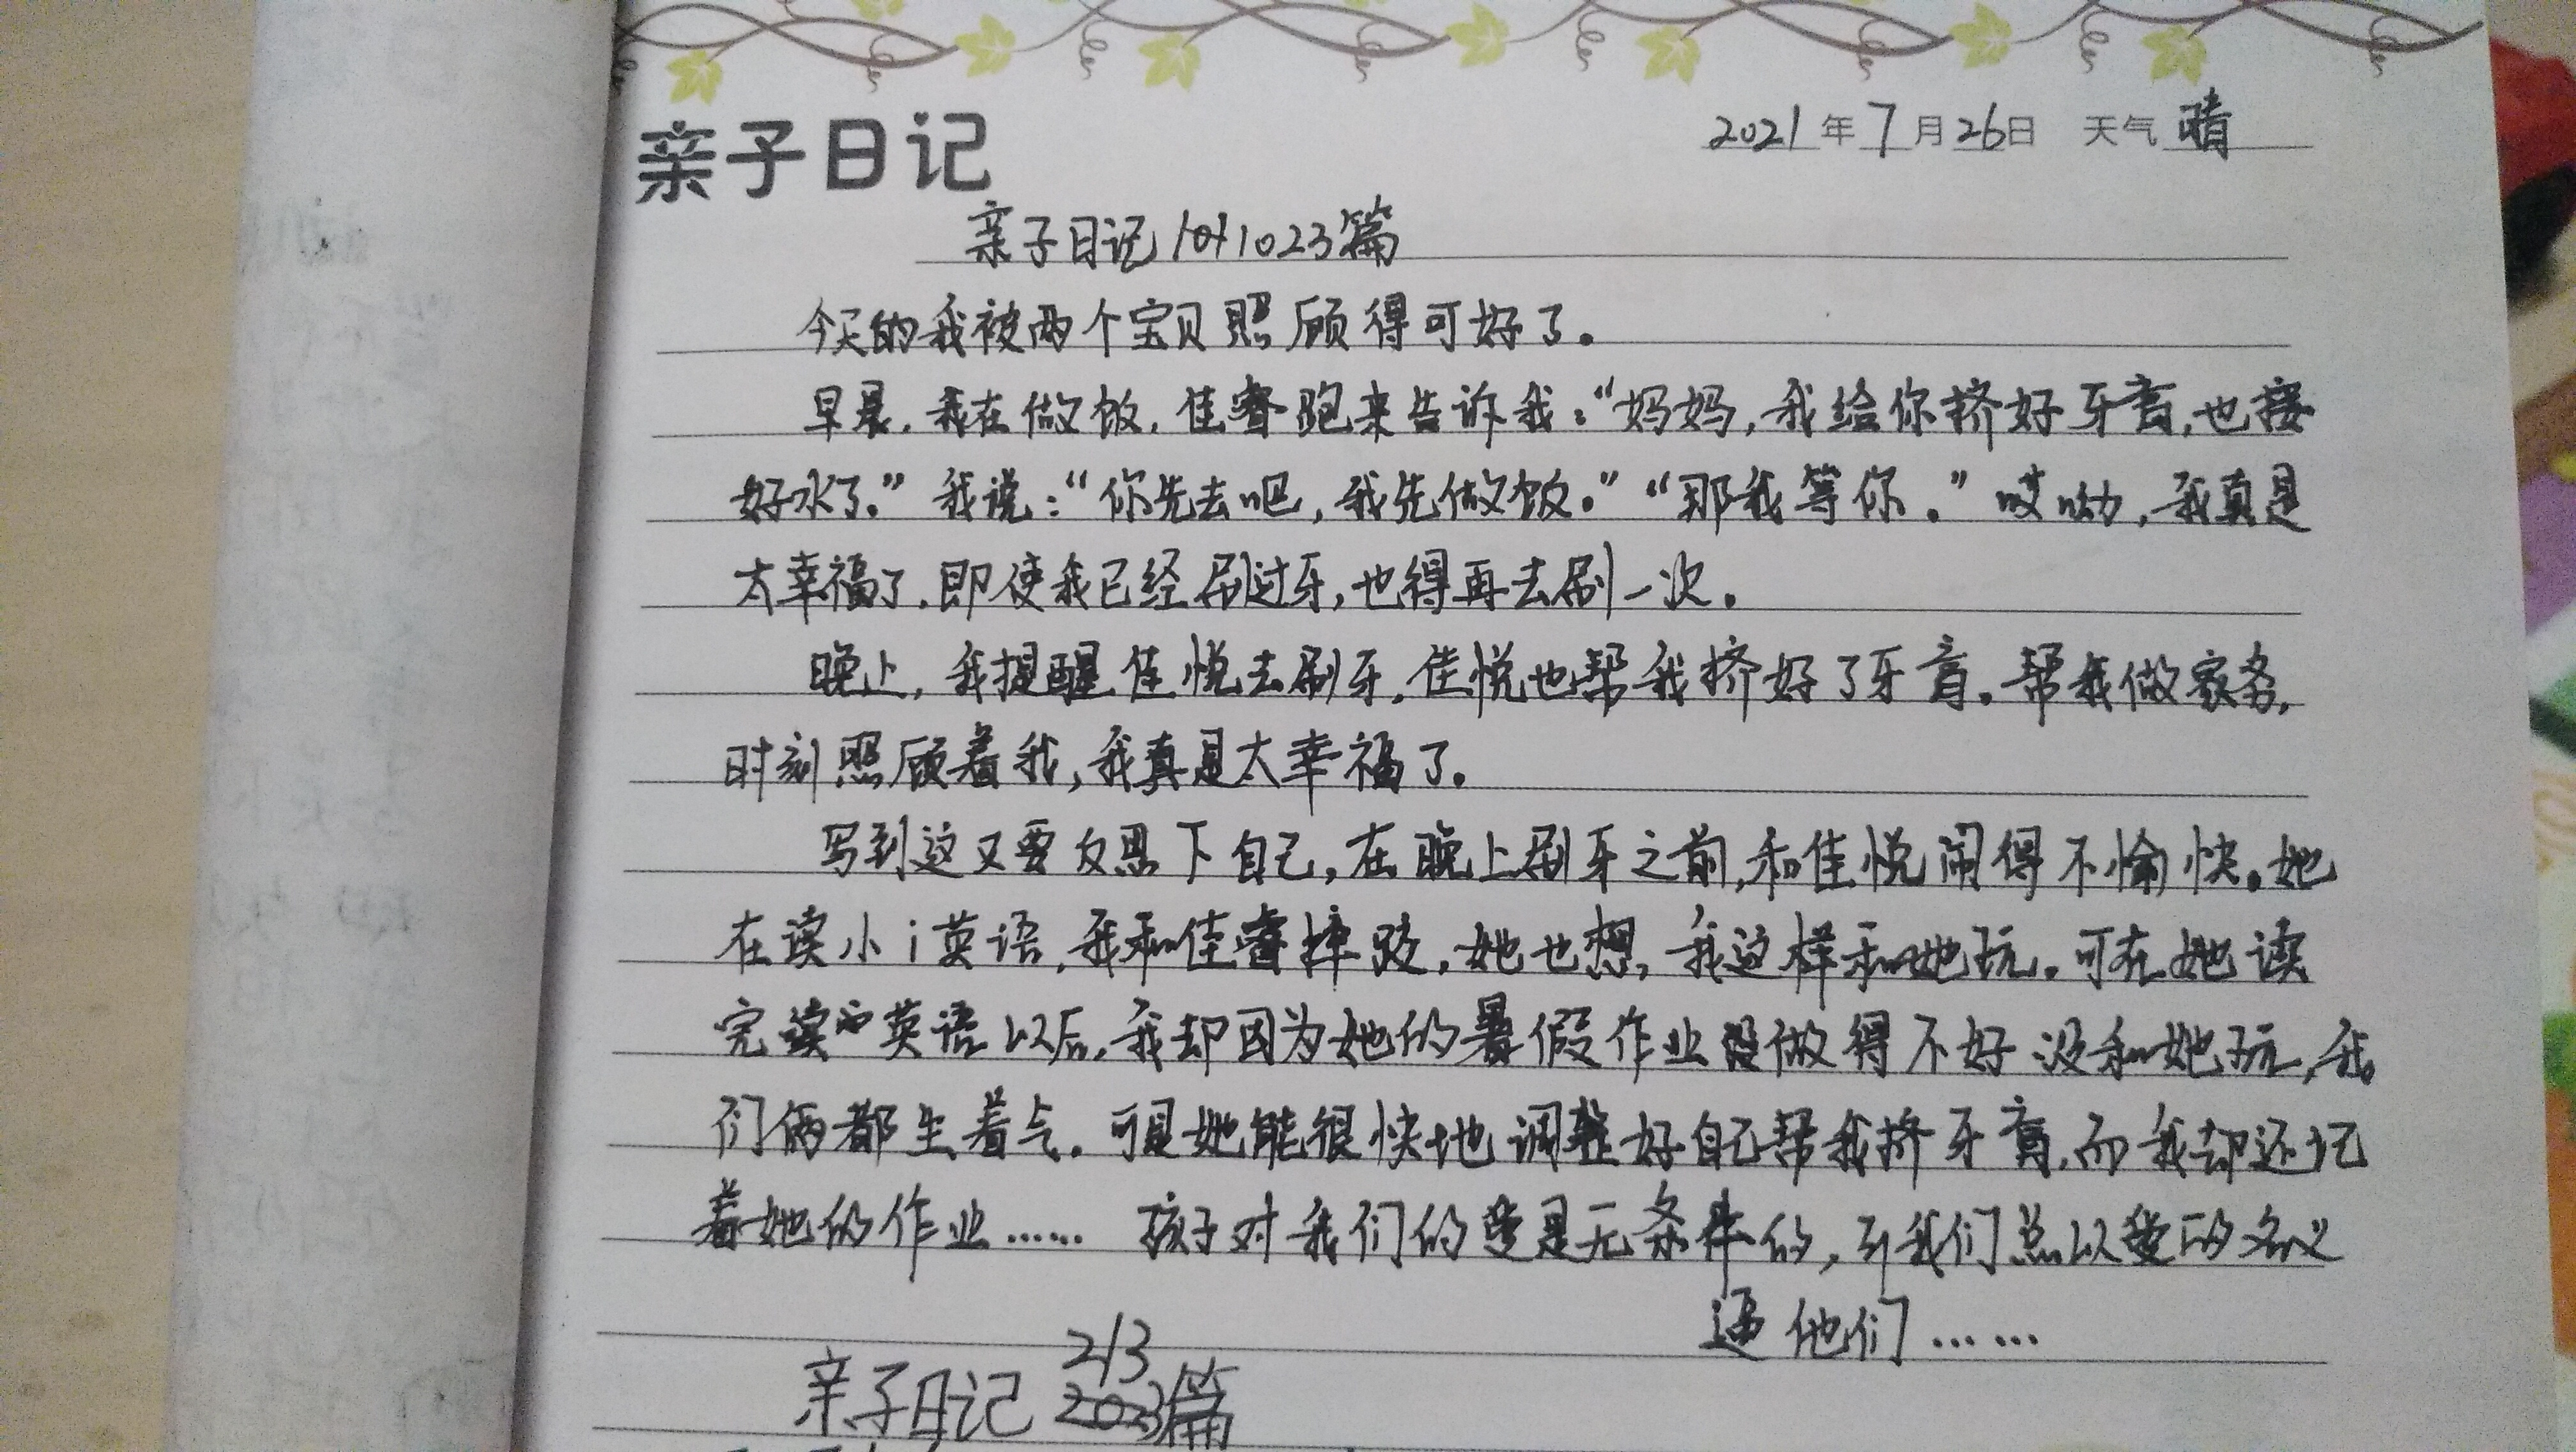 亲子日记
2021年7月26日 天气 晴
亲子日记 1023篇
今天的我被两个宝贝照顾得可好了。
早晨,我在做饭,佳睿跑来告诉我:“妈妈,我给你挤好牙膏,也接
好水了。”我说:“你先去吧,我先做饭。”“那我等你。”哎呦,我真是
太幸福了,即使我已经刷过牙,也得再去刷一次。
晚上,我提醒佳悦去刷牙,佳悦也帮我挤好了牙膏。帮我做家务,
时刻照顾着我,我真是太幸福了。
写到这又要反思下自己,在晚上刷牙之前,和佳悦闹得不愉快。她
在读小i英语,我和佳睿摔跤,她也想,我这样和她玩。可在她读
完英语以后,我却因为她的暑假作业做得不好没和她玩,我
们俩都生着气。可是她能很快地调整好自己帮我挤牙膏,而我却还记
着她的作业…… 孩子对我们的爱是无条件的,而我们总以爱的名义
逼他们……
亲子日记 213篇